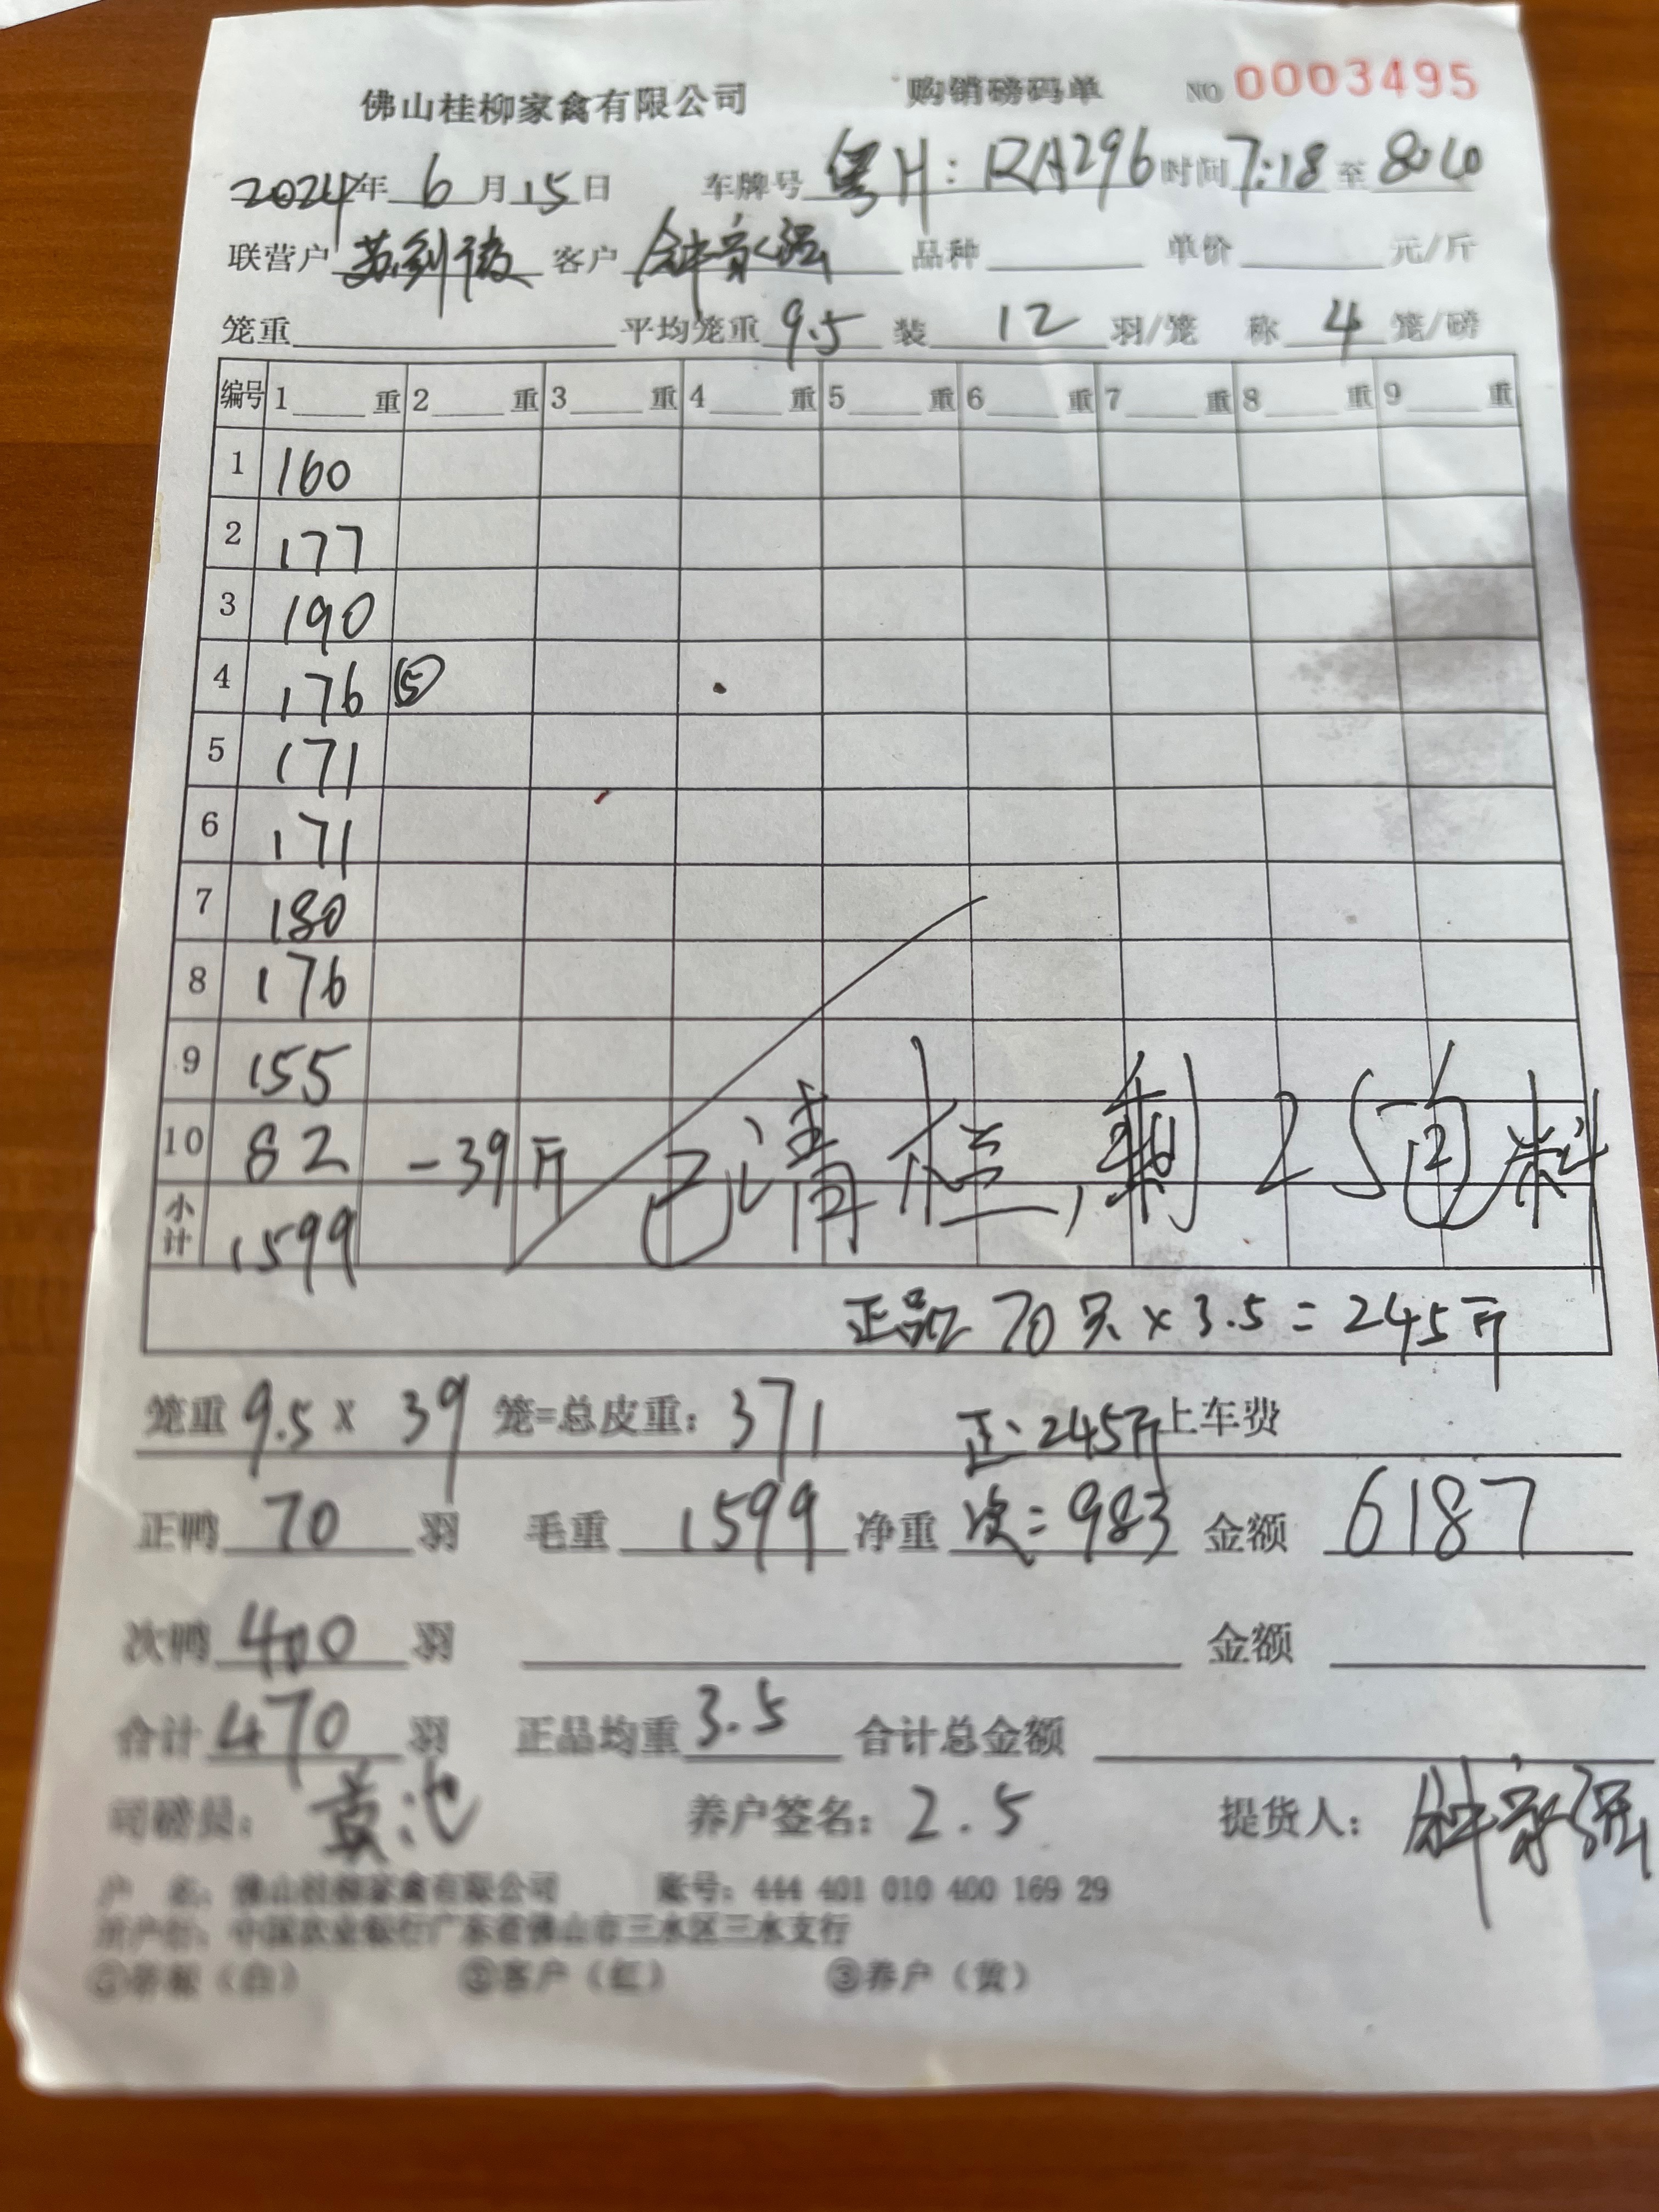 佛山桂柳家禽有限公司 购销磅码单 NO 0003495
2024年 6 月 15 日 车牌号 粤H:RA296 时间 7:18 至
联营户 客户 钟家强 品种 单价 元/斤
笼重 平均笼重 9.5 装 12 羽/笼 称 4 笼/磅
编号 1 重 2 重 3 重 4 重 5 重 6 重 7 重 8 重 9 重
1 160
2 177
3 190
4 176 ⑤
5 171
6 171
7 180
8 176
9 155
10 82 -39斤 已清栏,剩25包料
小计 1599
正品 70只×3.5=245斤
笼重 9.5 x 39 笼=总皮重: 371 正:245斤 上车费
正鸭 70 羽 毛重 1599 净重 次:983 金额 6187
次鸭 400 羽 金额
合计 470 羽 正品均重 3.5 合计总金额
司磅员: 养户签名: 2.5 提货人: 钟家强
户 名: 佛山桂柳家禽有限公司 账号: 444 401 010 400 169 29
开户行: 中国农业银行广东省佛山市三水区三水支行
(白) ②客户(红) ③养户(黄)